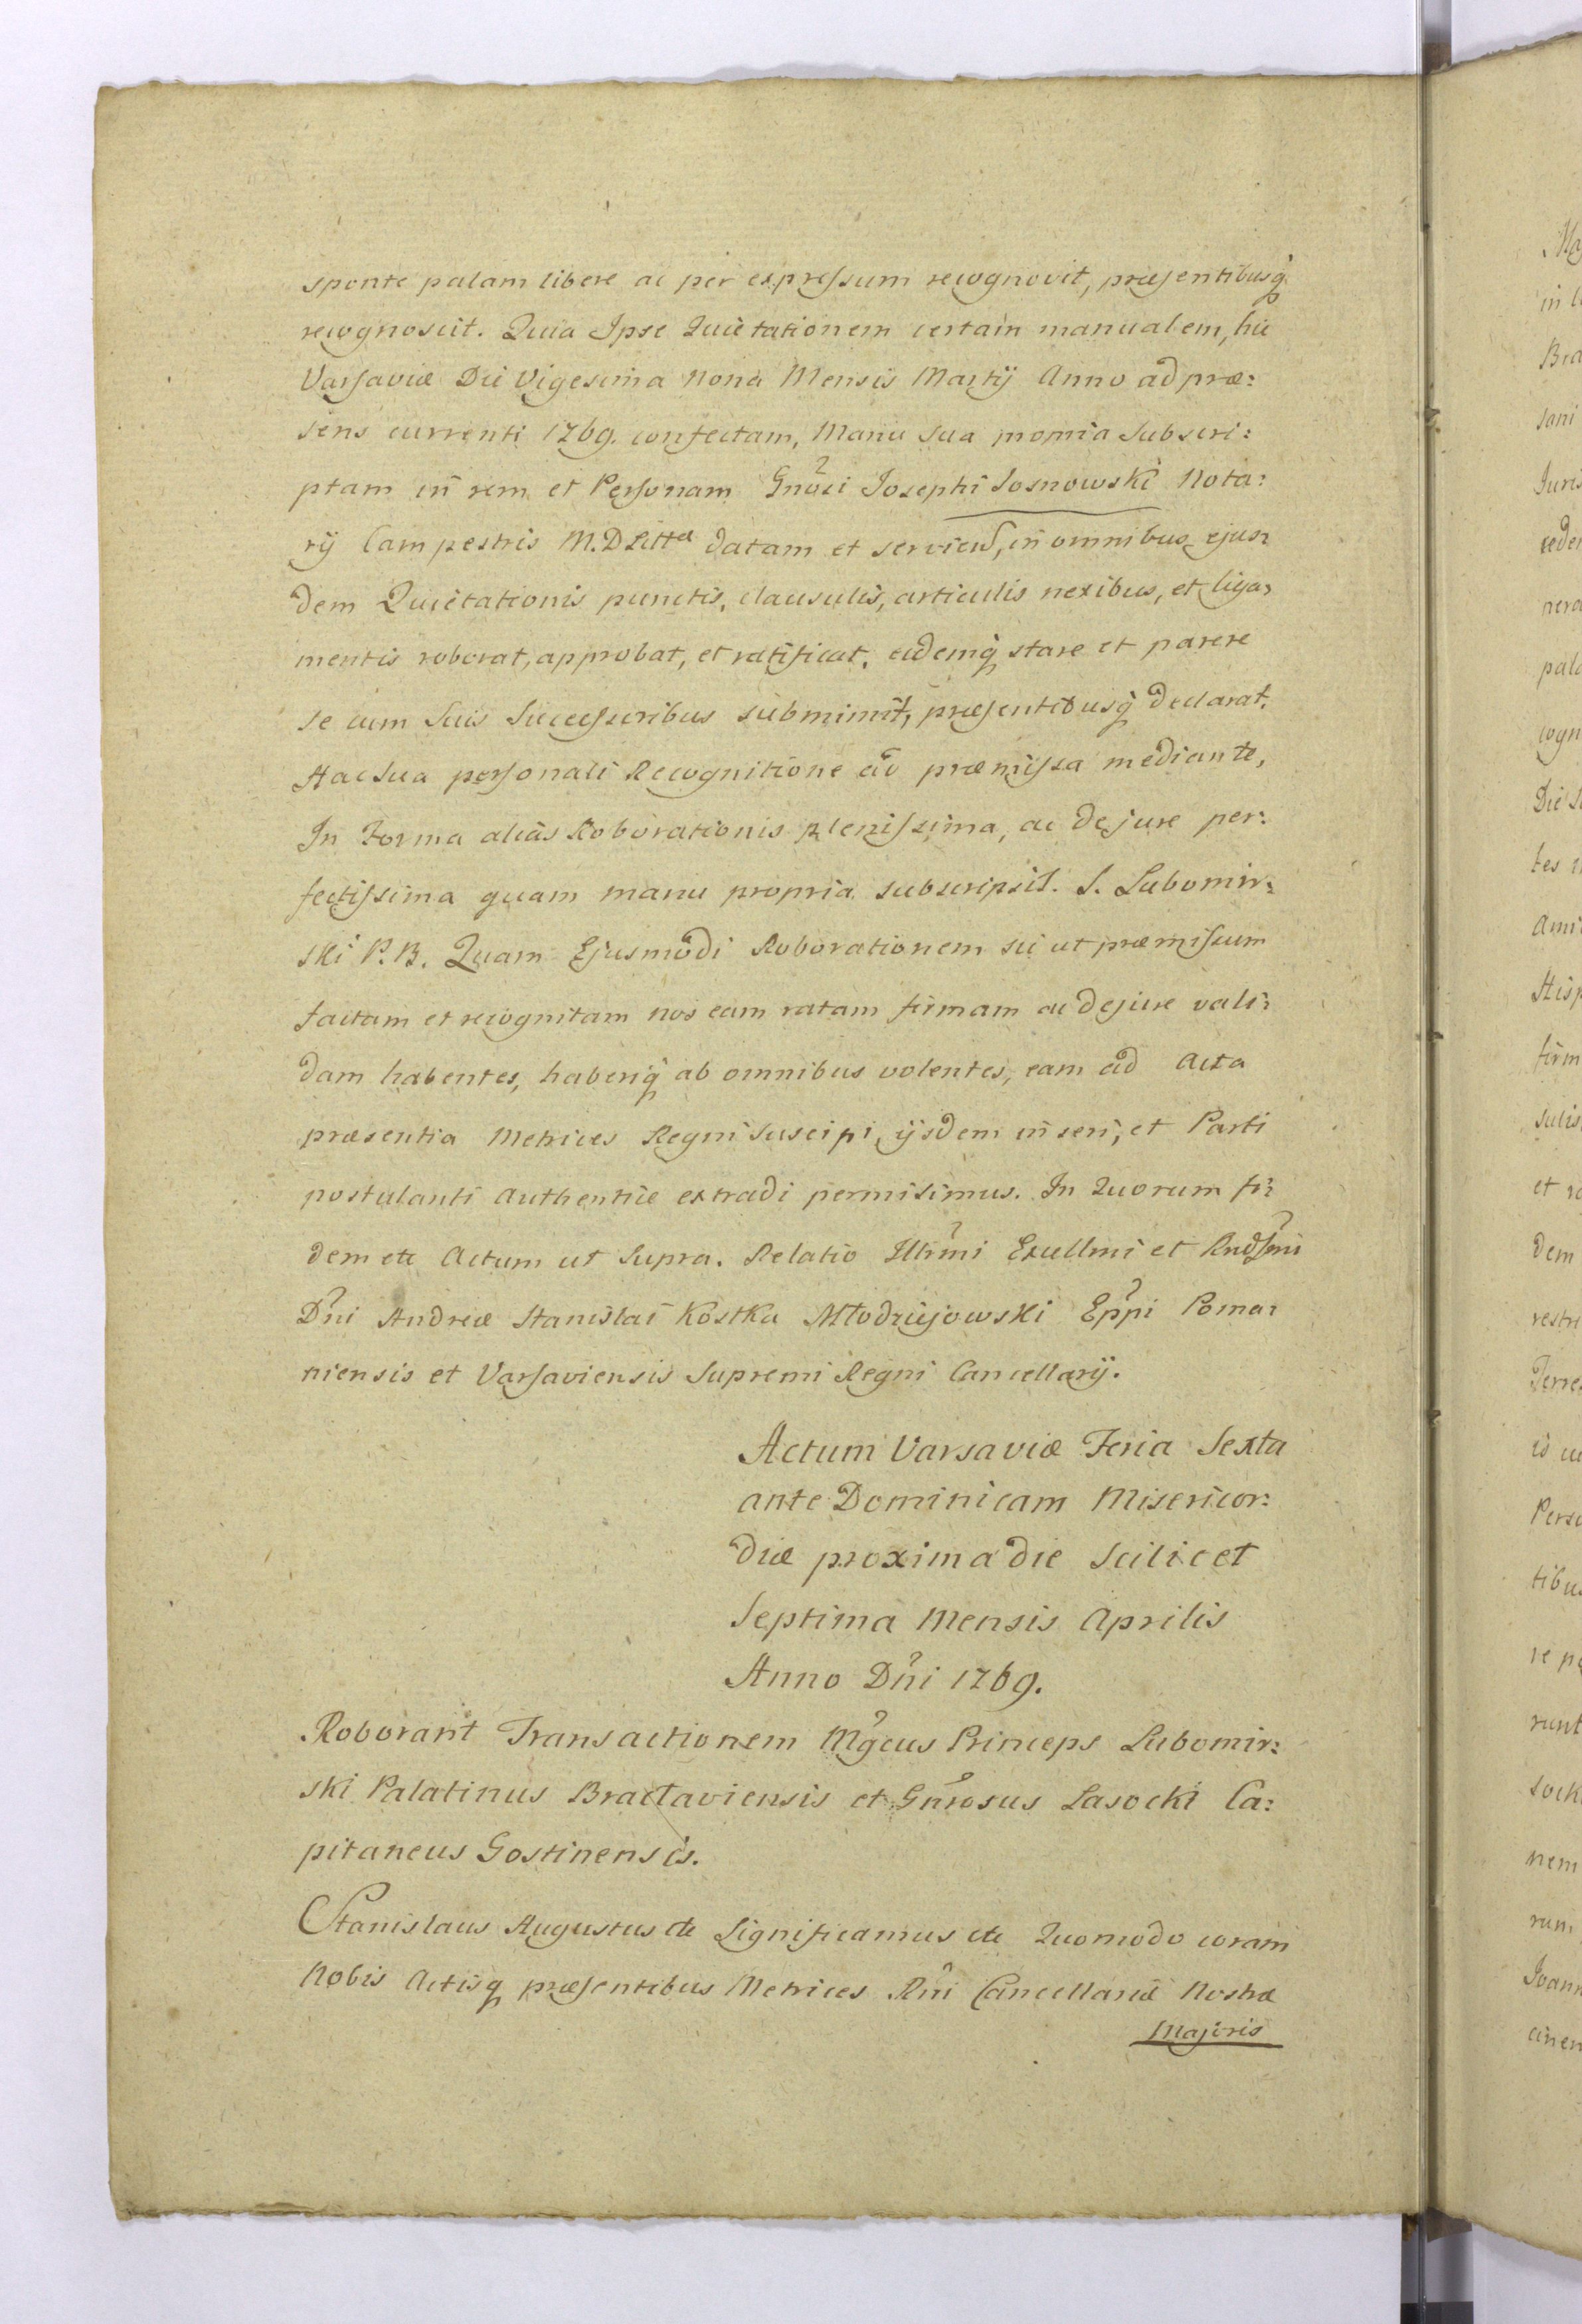 sponte palam libere ac per expressum recognovit, præsentibusq
recognoscit. Quia Ipse Quietationem certam manualem, hic
Varsaviæ Die Vigesima Nona Mensis Martij Anno ad præ:
sens currenti 1769. confectam, Manu sua propria subscri:
ptam in rem et Personam Gnosi Josephi Sosnowski Nota:
rij Campestris M.D Litta datam et servien, in omnibus ejus:
dem Quietationis punctis, clausulis, articulis nexibus, et liga:
mentis roborat, approbat, et ratificat, eidemq stare et parere
se cum suis Successoribus submimit, præsentibusq declarat,
Hac sua personali Recognitione ad præmissa mediante,
In Forma alias Roborationis plenissima, ac de jure per:
fectissima quam manu propria subscripsit. S. Lubomir:
ski P.B. Quam Ejusmodi Roborationem sic ut præmissum
factam et recognitam nos eam ratam firmam ac de jure vali:
dam habentes, haberiq ab omnibus volentes, eam ad Acta
præsentia Metrices Regni suscipi, ijsdem inseri, et Parti
postulanti authentice extradi permisimus. In Quorum fi:
dem etc Actum ut Supra. Relatio Illrmi Excellmi et Rndssmi
Dni Andreæ Stanislai Kostka Młodziejowski Eppi Pozna:
niensis et Varsaviensis Supremi Regni Cancellarij.
Actum Varsaviæ Feria Sexta
ante Dominicam Misericor:
diæ proxima die scilicet
Septima Mensis Aprilis
Anno Dni 1769.
Roborant Transactionem Mgcus Princeps Lubomir:
ski Palatinus Braclaviensis et Gnrosus Lasocki Ca:
pitaneus Gostinensis.
Stanislaus Augustus etc Significamus etc Quomodo coram
Nobis Actisq præsentibus Metrices Rni Cancellariæ Nostræ
Majoris